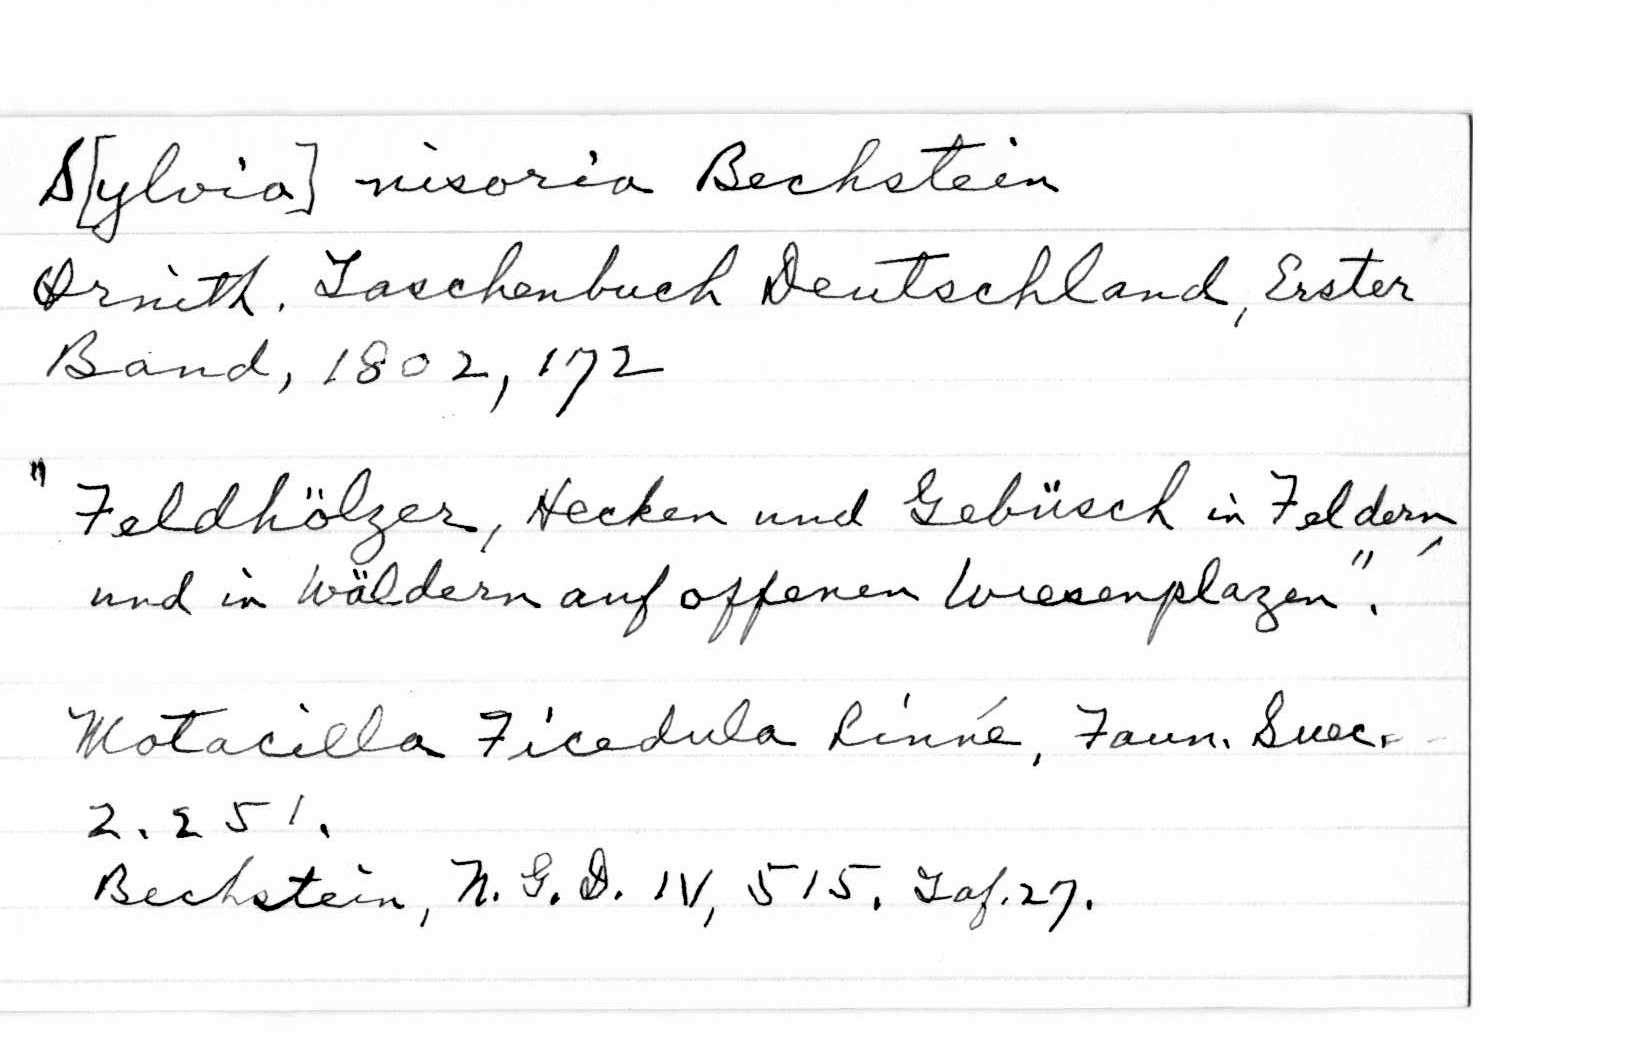 S[ylvia] nisoria Bechstein
Ornith. Taschenbuch Deutschland, Erster
Band, 1802, 172
"Feldhölzer, Hecken und Gebüsch in Feldern,
und in Wäldern auf offenen Wiesenplazen".
Motacilla Ficedula Linné, Faun. Suec.
2. 251.
Bechstein, N. G. D. IV, 515. Taf. 27.